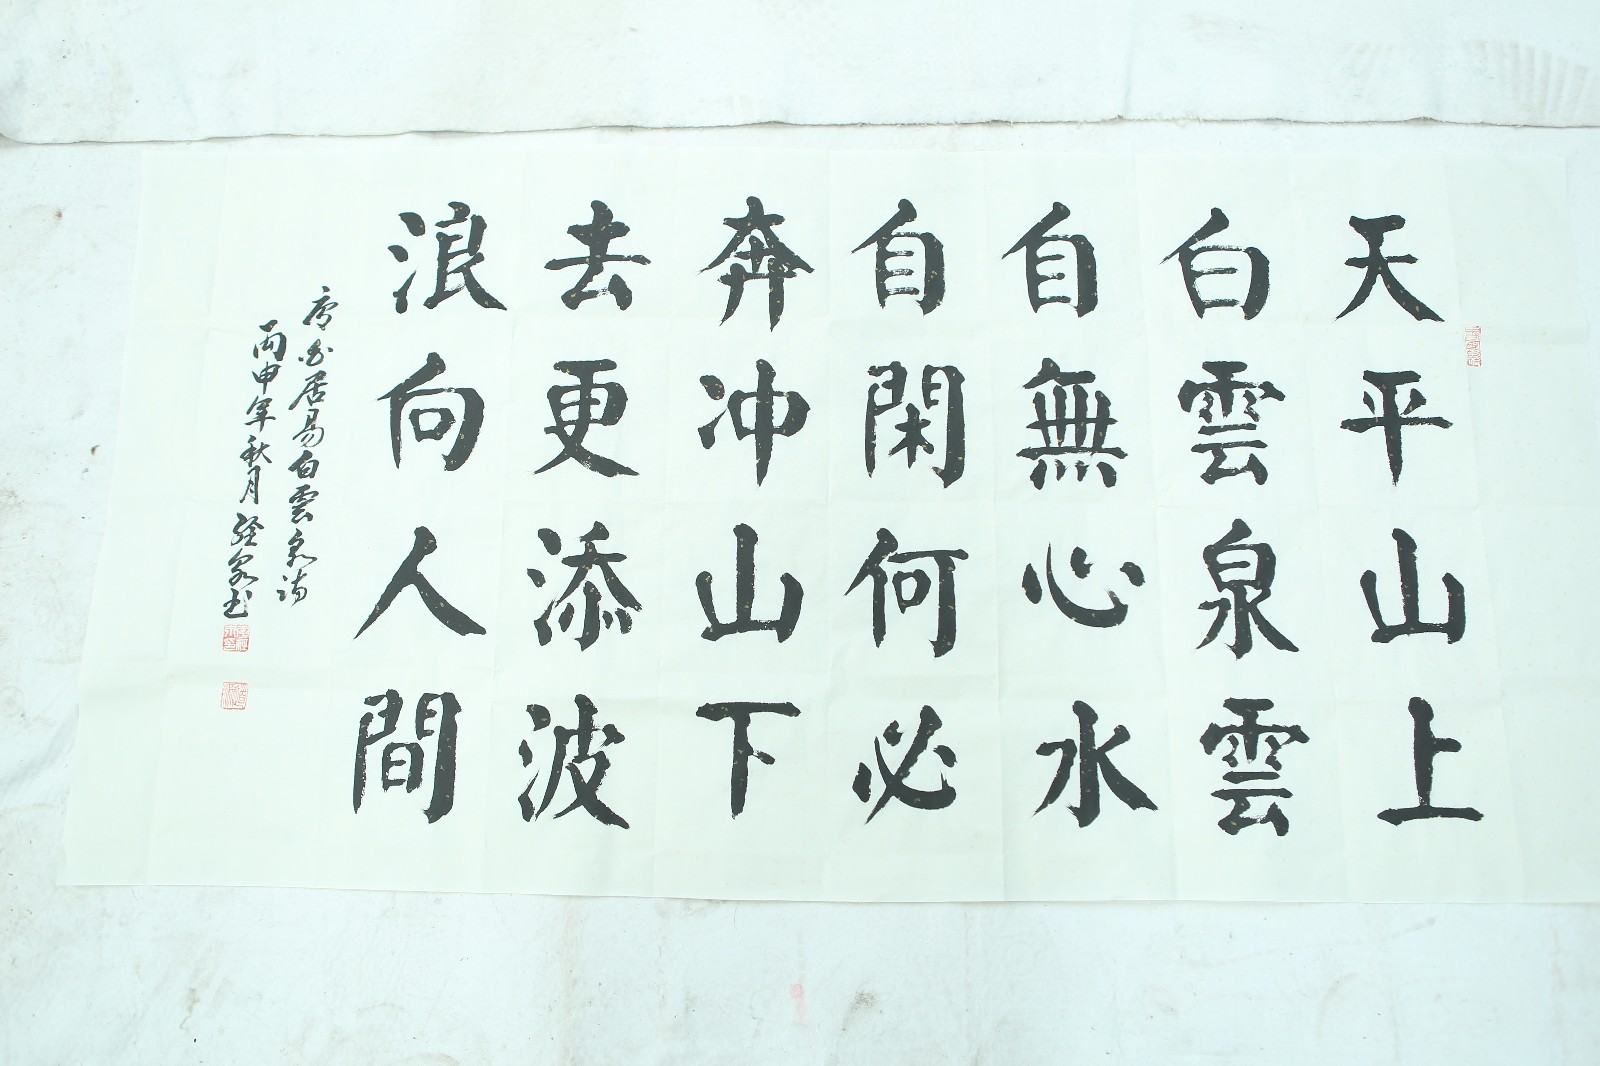 天平山上
白雲泉雲
自無心水
自閑何必
奔冲山下
去更添波
浪向人間
唐白居易白雲泉詩
丙申年秋月經泉书